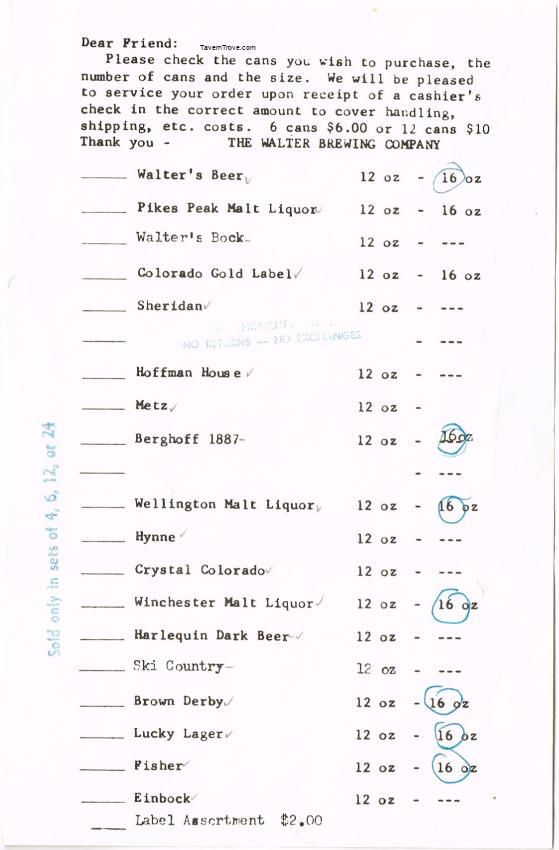 Dear Friend:
TavernTrove.com
Please check the cans you wish to purchase, the
number of cans and the size. We will be pleased
to service your order upon receipt of a cashier's
check in the correct amount to cover handling,
shipping, etc. costs. 6 cans $6.00 or 12 cans $10
Thank you - THE WALTER BREWING COMPANY
_____ Walter's Beer 12 oz - 16 oz
_____ Pikes Peak Malt Liquor 12 oz - 16 oz
_____ Walter's Bock 12 oz - ---
_____ Colorado Gold Label 12 oz - 16 oz
_____ Sheridan 12 oz - ---
NO RETURNS — NO EXCHANGES
_____ - ---
_____ Hoffman House 12 oz - ---
_____ Metz 12 oz -
_____ Berghoff 1887 12 oz - 16oz
_____ - ---
_____ Wellington Malt Liquor 12 oz - 16 oz
_____ Hynne 12 oz - ---
_____ Crystal Colorado 12 oz - ---
_____ Winchester Malt Liquor 12 oz - 16 oz
_____ Harlequin Dark Beer 12 oz - ---
_____ Ski Country 12 oz - ---
_____ Brown Derby 12 oz - 16 oz
_____ Lucky Lager 12 oz - 16 oz
_____ Fisher 12 oz - 16 oz
_____ Einbock 12 oz - ---
_____ Label Assortment $2.00
Sold only in sets of 4, 6, 12, or 24